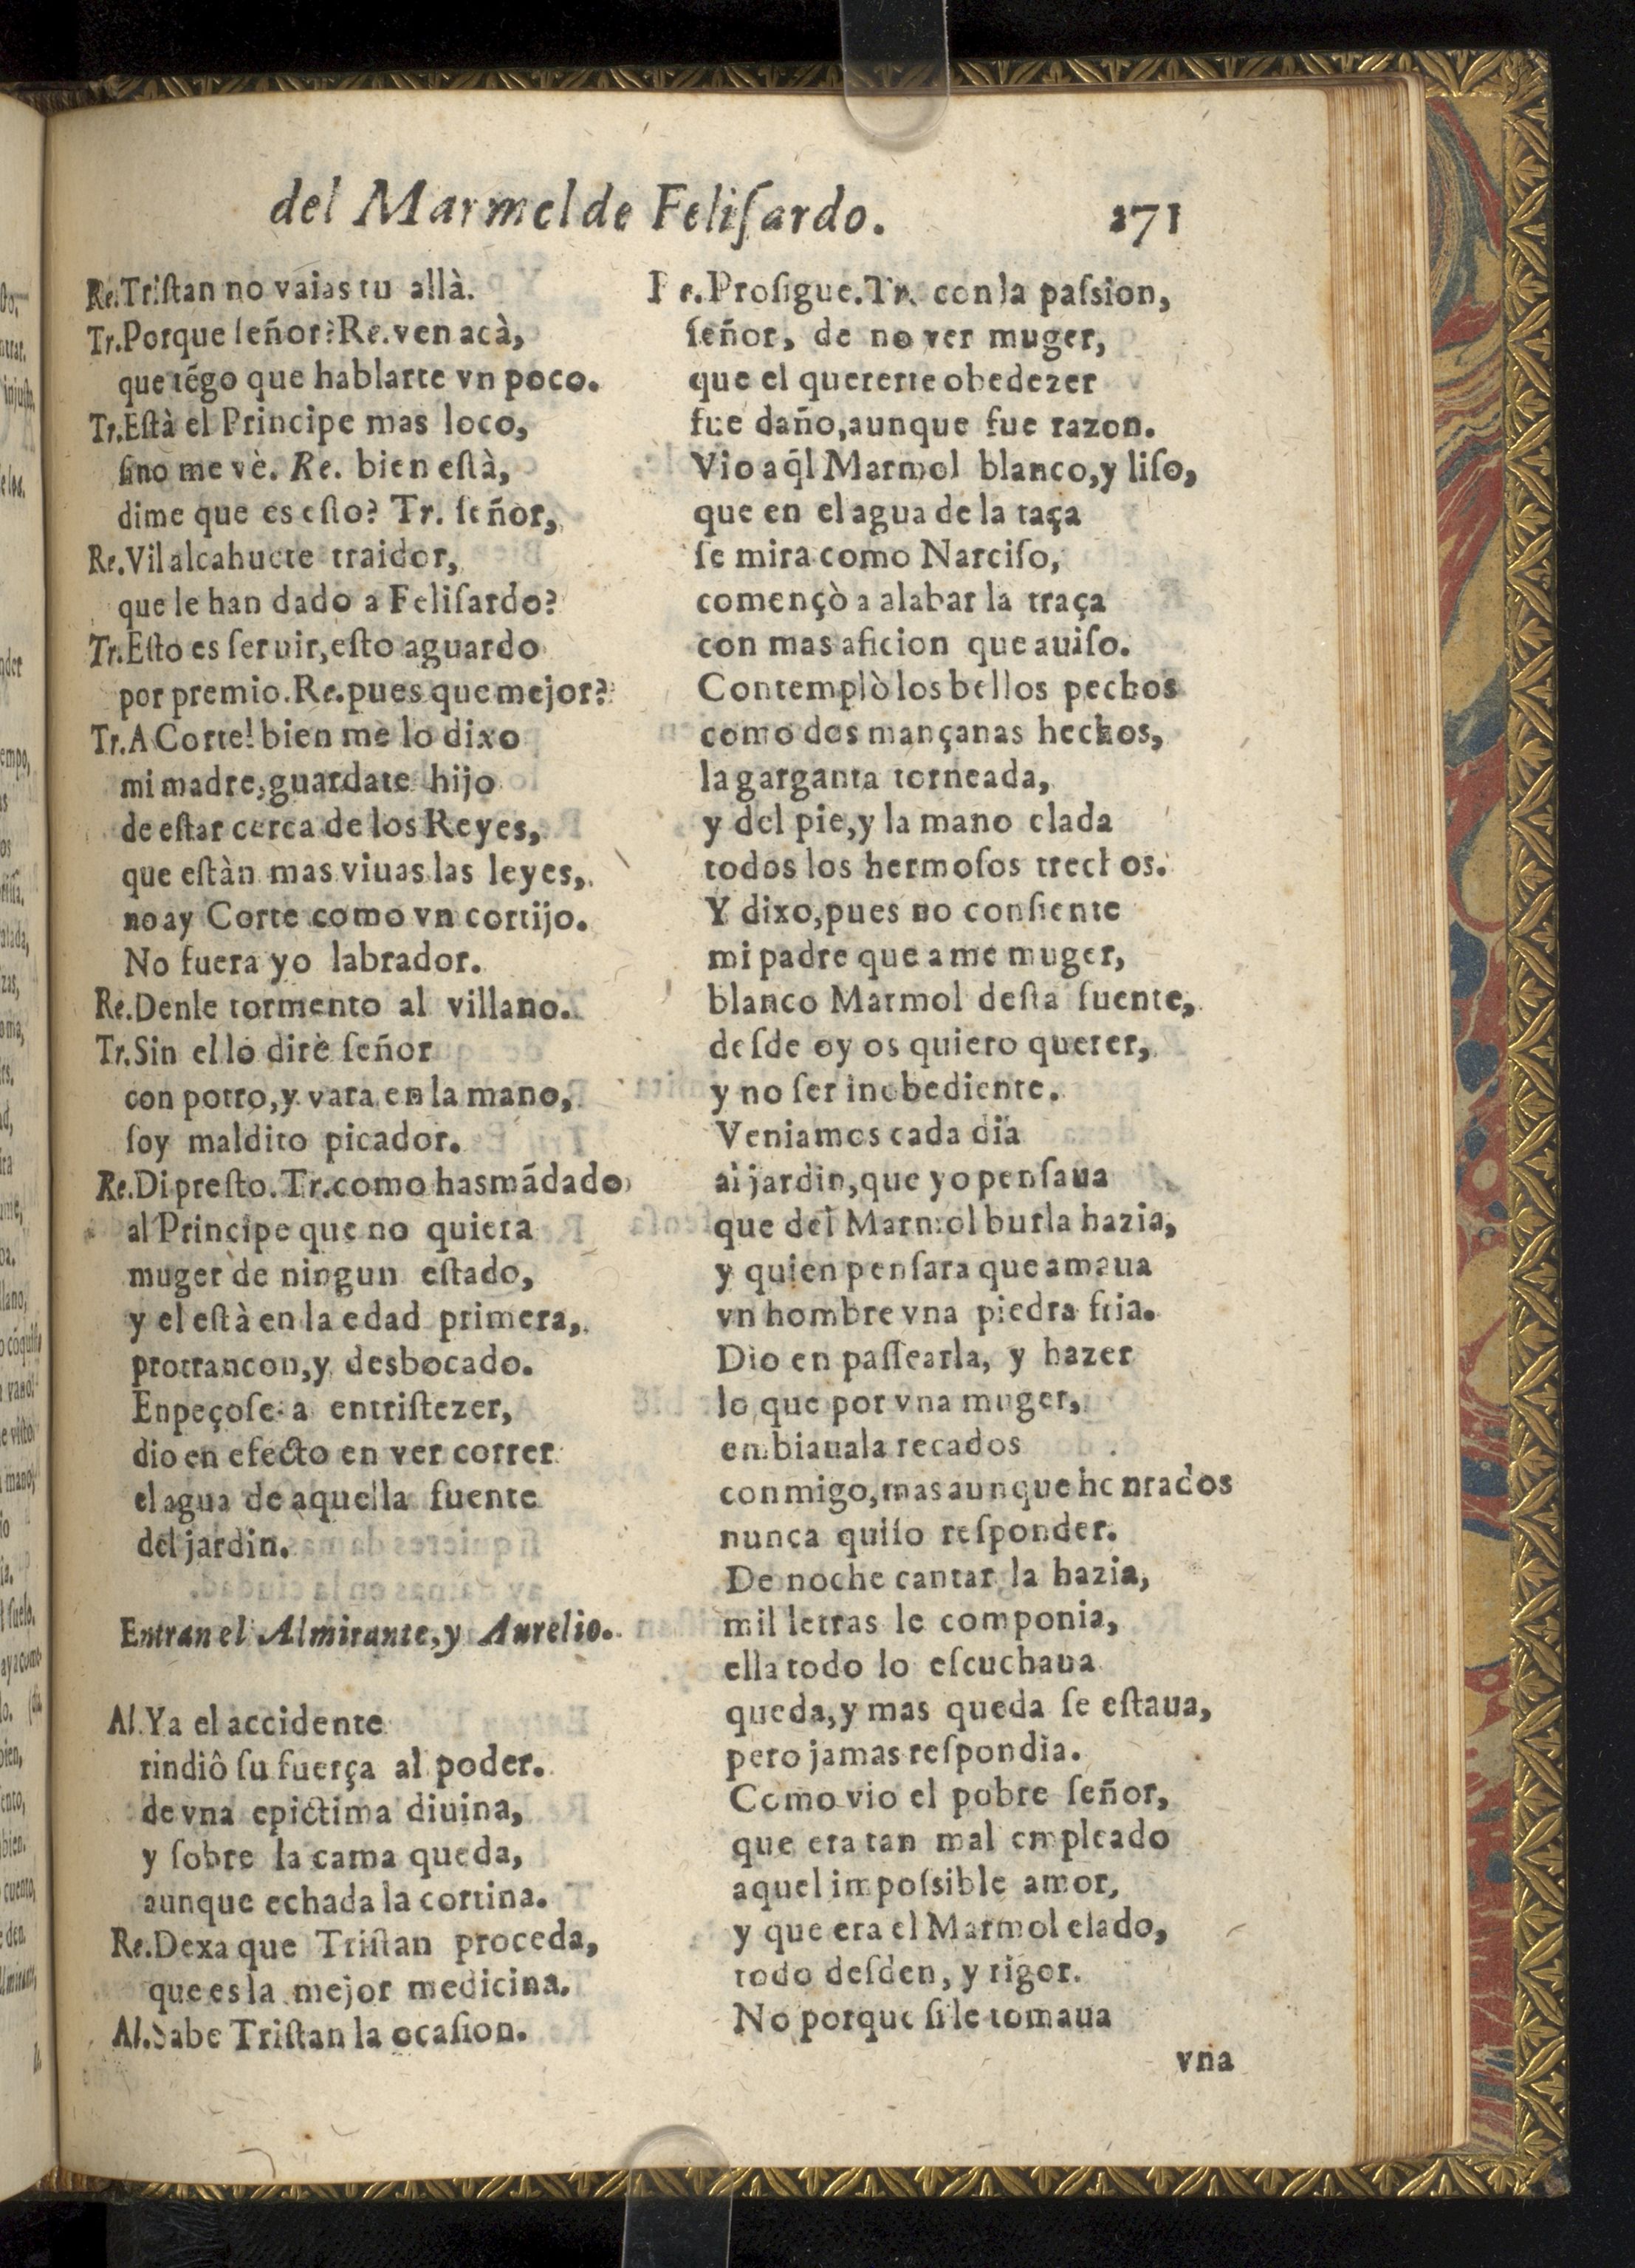 del Marmol de Feliſardo.
271
Re.Triſtan no vaias tu allà.
Tr.Porque ſeñor? Re. ven acà,
que tẽgo que hablarte vn poco.
Tr.Eſtà el Principe mas loco,
ſi no me vè. Re. bien eſtà,
dime que es eſto? Tr. ſeñor,
Re.Vil alcahuete traidor,
que le han dado a Feliſardo?
Tr.Eſto es ſeruir, eſto aguardo
por premio. Re. pues que mejor?
Tr.A Corte! bien me lo dixo
mi madre, guardate hijo
de eſtar cerca de los Reyes,
que eſtàn mas viuas las leyes,
no ay Corte como vn cortijo.
No fuera yo labrador.
Re.Denle tormento al villano.
Tr.Sin el lo dirè ſeñor
con potro, y vara en la mano,
ſoy maldito picador.
Re.Di preſto. Tr. como has mãdado
al Principe que no quiera
muger de ningun eſtado,
y el eſtà en la edad primera,
protrancon, y desbocado.
Enpeçoſe a entriſtezer,
dio en efecto en ver correr
el agua de aquella fuente
del jardin.
Entran el Almirante, y Aurelio.
Al.Ya el accidente
rindiô ſu fuerça al poder.
de vna epictima diuina,
y ſobre la cama queda,
aunque echada la cortina.
Re.Dexa que Triſtan proceda,
que es la mejor medicina.
Al.Sabe Triſtan la ocaſion.
Re.Proſigue. Tr. con la paſsion,
ſeñor, de no ver muger,
que el quererte obedezer
fue daño, aunque fue razon.
Vio aq̃l Marmol blanco, y liſo,
que en el agua de la taça
ſe mira como Narciſo,
començò a alabar la traça
con mas aficion que auiſo.
Contemplò los bellos pechos
como dos mançanas hechos,
la garganta torneada,
y del pie, y la mano elada
todos los hermoſos trechos.
Y dixo, pues no conſiente
mi padre que ame muger,
blanco Marmol deſta fuente,
deſde oy os quiero querer,
y no ſer inobediente.
Veniamos cada dia
al jardin, que yo penſaua
que del Marmol burla hazia,
y quien penſara que amaua
vn hombre vna piedra fria.
Dio en paſſearla, y hazer
lo que por vna muger,
embiauala recados
conmigo, mas aunque honrados
nunca quiſo reſponder.
De noche cantar la hazia,
mil letras le componia,
ella todo lo eſcuchaua
queda, y mas queda ſe eſtaua,
pero jamas reſpondia.
Como vio el pobre ſeñor,
que era tan mal empleado
aquel impoſsible amor,
y que era el Marmol elado,
todo deſden, y rigor.
No porque ſi le tomaua
vna